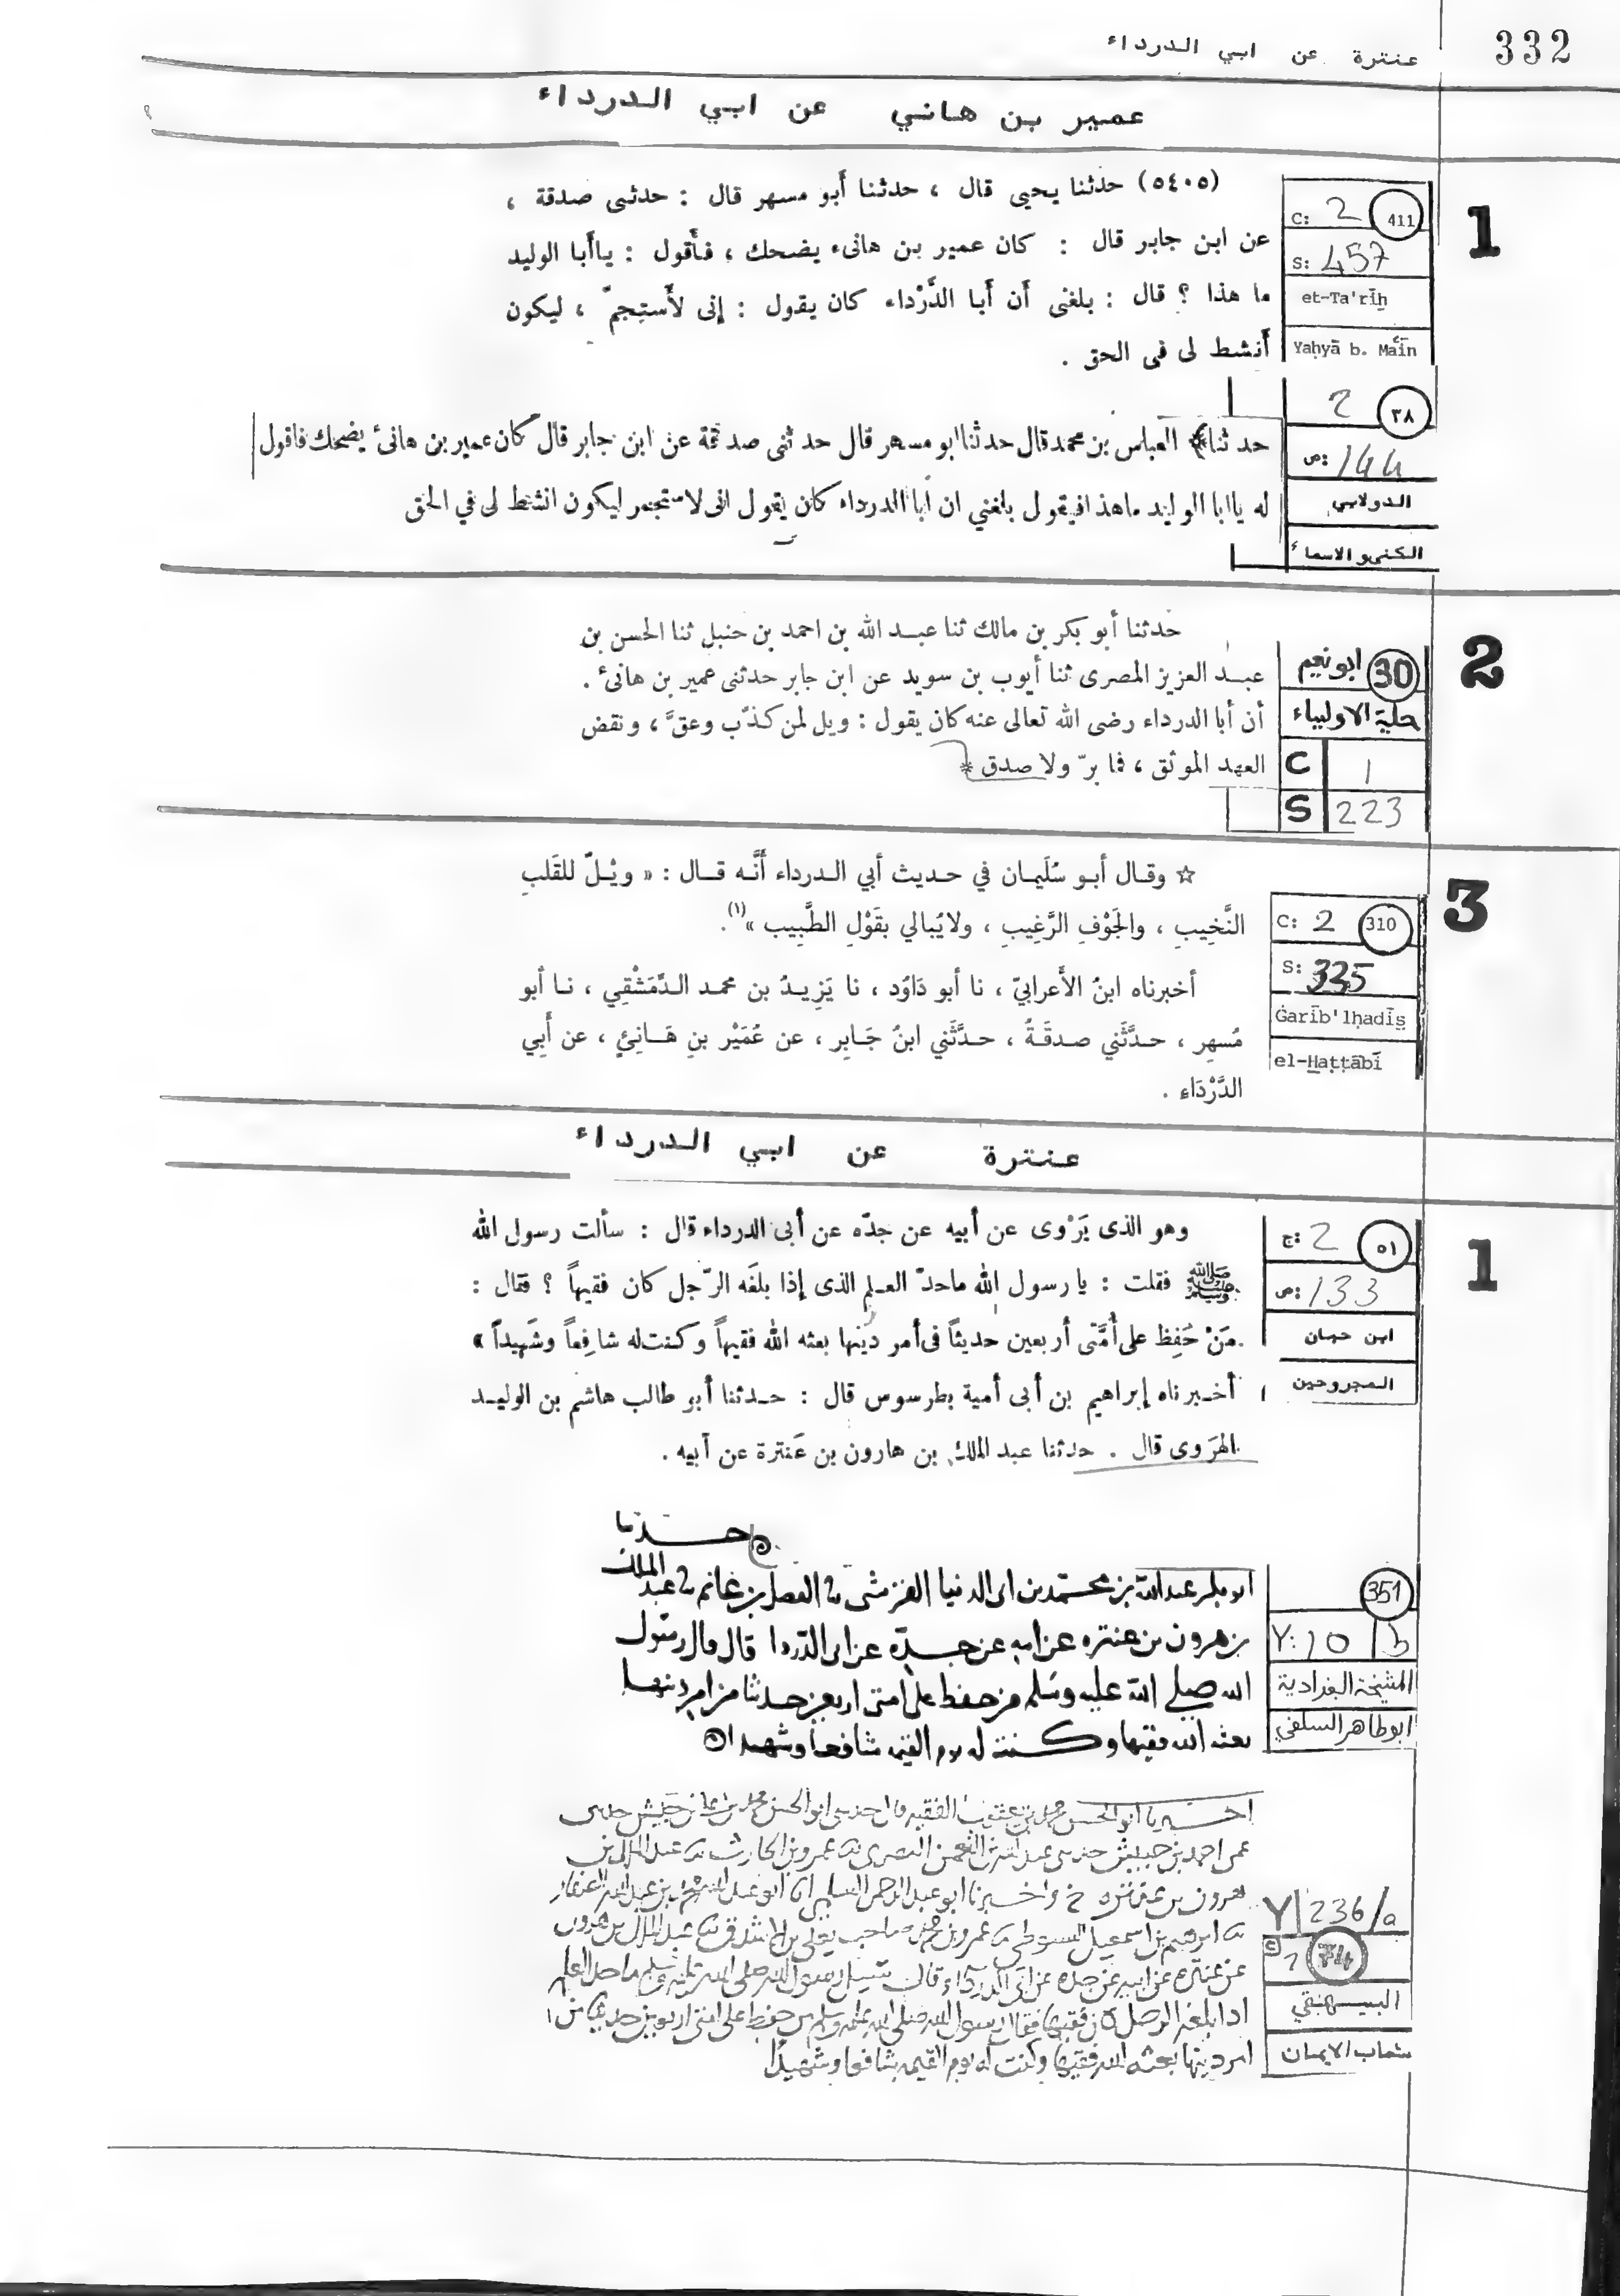 332
عنترة عن ابي الدرداء
عمير بن هاني عن ابي الدرداء
1
C: 2 411
S: 457
et-Ta'rīḫ
Yaḥyā b. Maʿīn
(٥٤٠٥) حدثنا يحيى قال ، حدثنا أبو مسهر قال : حدثنى صدقة ،
عن ابن جابر قال : كان عمير بن هانىء يضحك ، فأقول : ياأبا الوليد
ما هذا ؟ قال : بلغنى أن أبا الدَّرْداء كان يقول : إنى لأستجمّ ، ليكون
أنشط لى فى الحق .
2 ٣٨
ص: 144
الدولابي
الكنى و الاسماء
حدثنا العباس بن محمد قال حدثنا ابو مسهر قال حدثنى صدقة عن ابن جابر قال كان عمير بن هانئ يضحك فاقول
له يا ابا الوليد ما هذا فيقول بلغني ان ابا الدرداء كان يقول انى لاستجمر ليكون انشط لى في الحق
2
30 ابو نعيم
حلية الاولياء
C 1
S 223
حدثنا أبو بكر بن مالك ثنا عبد الله بن احمد بن حنبل ثنا الحسن بن
عبد العزيز المصرى ثنا أيوب بن سويد عن ابن جابر حدثنى عمير بن هانئ .
أن أبا الدرداء رضى الله تعالى عنه كان يقول : ويل لمن كذّب وعقَّ ، ونقض
العهد الموثق ، فما برّ ولا صدق *
3
C: 2 310
S: 335
Ġarīb'lḥadīs̱
el-Ḫaṭṭābī
☆ وقال أبو سُلَيمان في حديث أبي الدرداء أنَّه قال : « ويْلٌ للقَلبِ
النَّخِيبِ ، والجَوْفِ الرَّغِيبِ ، ولا يُبالي بقَوْلِ الطَّبِيب »(١).
أخبرناه ابنُ الأعرابيّ ، نا أبو دَاوُد ، نا يَزِيدُ بن محمد الدِّمَشْقِي ، نا أبو
مُسهِر ، حدَّثَني صدقَةُ ، حدَّثَني ابنُ جَابِر ، عن عُمَيْر بنِ هَانِئٍ ، عن أَبِي
الدَّرْدَاء .
عنترة عن ابي الدرداء
1
ج: 2 ٥١
ص: 133
ابن حبان
المجروحين
وهو الذى يَرْوى عن أبيه عن جدّه عن أبى الدرداء قال : سألت رسول الله
ﷺ فقلت : يا رسول الله ماحدّ العلم الذى إذا بلغَه الرّجل كان فقيهاً ؟ فقال :
مَنْ حَفِظ على أُمَّتى أربعين حديثاً فى أمر دينها بعثه الله فقيهاً وكنت له شافِعاً وشَهِيداً »
أخبرناه إبراهيم بن أبى أمية بطرسوس قال : حدثنا أبو طالب هاشم بن الوليد
الهرَوى قال . حدثنا عبد الملك بن هارون بن عَنترة عن أبيه .
حدثنا
351
Y: 10 b
المشيخة البغدادية
ابو طاهر السلفي
ابو بكر عبد الله بن محمد بن ابى الدنيا القرشى نا الفضل بن غانم نا عبد الملك
بن هرون بن عنتره عن ابيه عن جده عن ابى الدردا قال قال رسول
الله صلى الله عليه وسلم من حفظ على امتى اربعين حديثا من امر دينها
بعثه الله فقيها وكنت له يوم القيمه شافعا وشهيدا
Y 236/a
C 2 74
البيهقي
شعاب الايمان
اخبرنا ابو الحسن محمد بن يعقوب الفقيه قال حدثنى ابو الحسن محمد بن على بن حبيش حدثنى
عمى احمد بن حبيش حدثنى عبد الله بن النعمن البصرى نا عمرو بن الحارث نا عبد الملك بن
هرون بن عنتره ح واخبرنا ابو عبد الرحمن السلمى انا ابو عبد الله محمد بن عبد الله الصفار
نا ابرهيم بن اسمعيل السيوطى نا عمرو بن محمد صاحب يعلى بن الاشدق نا عبد الملك بن هرون
بن عنتره عن ابيه عن جده عن ابى الدرداء قال سئل رسول الله صلى الله عليه وسلم ما حد العلم
اذا بلغه الرجل كان فقيها فقال رسول الله صلى الله عليه وسلم من حفظ على امتى اربعين حديثا من
امر دينها بعثه الله فقيها وكنت له يوم القيمه شافعا وشهيدا